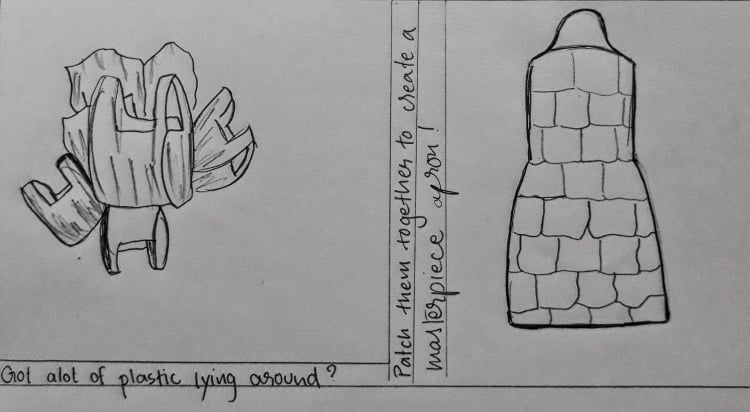 Got alot of plastic lying around?
Patch them together to create a
masterpiece apron!